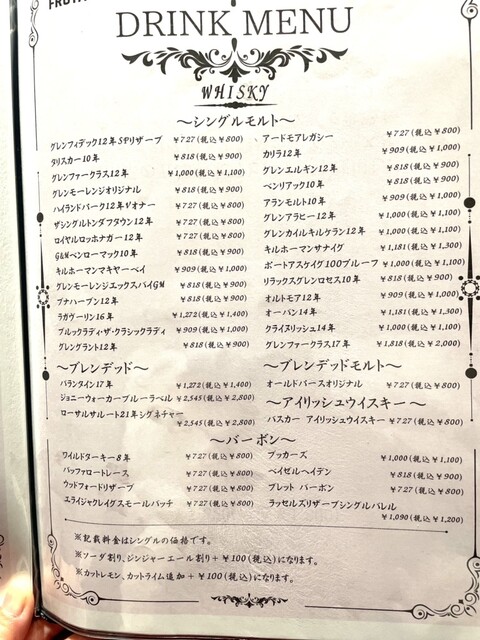 DRINK MENU
WHISKY
～シングルモルト～
グレンフィデック12年SPリザーブ ￥727(税込￥800)
タリスカー10年 ￥818(税込￥900)
グレンファークラス12年 ￥1,000(税込￥1,100)
グレンモーレンジオリジナル ￥818(税込￥900)
ハイランドパーク12年Vオナー ￥727(税込￥800)
ザシングルトンダフタウン12年 ￥727(税込￥800)
ロイヤルロッホナガー12年 ￥727(税込￥800)
G&Mベンローマック10年 ￥818(税込￥900)
キルホーマンマキヤーベイ ￥909(税込￥1,000)
グレンモーレンジエックスバイGM ￥818(税込￥900)
ブナハーブン12年 ￥818(税込￥900)
ラガヴーリン16年 ￥1,272(税込￥1,400)
ブルックラディ・ザ・クラシックラディ ￥909(税込￥1,000)
グレングラント12年 ￥818(税込￥900)
アードモアレガシー ￥727(税込￥800)
カリラ12年 ￥909(税込￥1,000)
グレンエルギン12年 ￥818(税込￥900)
ベンリアック10年 ￥818(税込￥900)
アランモルト10年 ￥909(税込￥1,000)
グレンアラヒー12年 ￥1,000(税込￥1,100)
グレンカイルキルケラン12年 ￥1,000(税込￥1,100)
キルホーマンサナイグ ￥1,181(税込￥1,300)
ポートアスケイグ100プルーフ ￥1,000(税込￥1,100)
リラックスグレンロセス10年 ￥818(税込￥900)
オルトモア12年 ￥909(税込￥1,000)
オーバン14年 ￥1,181(税込￥1,300)
クライヌリッシュ14年 ￥1,000(税込￥1,100)
グレンファークラス17年 ￥1,818(税込￥2,000)
～ブレンデッド～
バランタイン17年 ￥1,272(税込￥1,400)
ジョニーウォーカーブルーラベル ￥2,545(税込￥2,800)
ローサルサルート21年シグネチャー
￥2,545(税込￥2,800)
～ブレンデッドモルト～
オールドパースオリジナル ￥727(税込￥800)
～アイリッシュウイスキー～
バスカー アイリッシュウイスキー ￥727(税込￥800)
～バーボン～
ワイルドターキー8年 ￥727(税込￥800)
バッファロートレース ￥727(税込￥800)
ウッドフォードリザーブ ￥727(税込￥800)
エライジャクレイグスモールバッチ ￥727(税込￥800)
ブッカーズ ￥1,000(税込￥1,100)
ベイゼルヘイデン ￥818(税込￥900)
ブレット バーボン ￥727(税込￥800)
ラッセルズリザーブシングルバレル
￥1,090(税込￥1,200)
※記載料金はシングルの価格です。
※ソーダ割り、ジンジャーエール割り＋￥100(税込)になります。
※カットレモン、カットライム追加＋￥100(税込)になります。